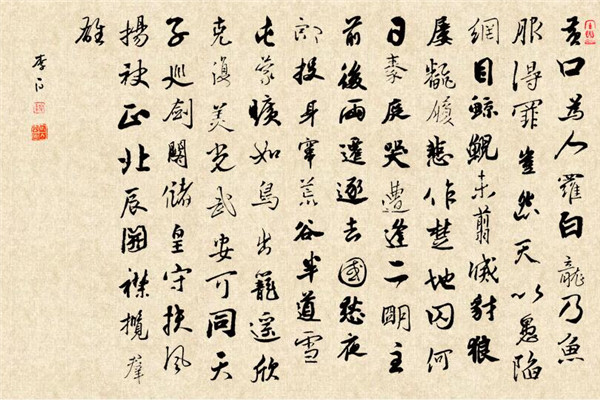 黄口為人羅白龍乃魚
服得罪豈怨天以愚陷
網目鯨鯢未翦滅豺狼
屢翻覆悲作楚地囚何
日秦庭哭遭逢二明主
前後兩遷逐去國愁夜
郎投身竄荒谷半道雪
屯蒙曠如鳥出籠遙欣
克復美光武安可同天
子巡劍閣儲皇守扶風
揚袂正北辰開襟攬羣
雄
李白